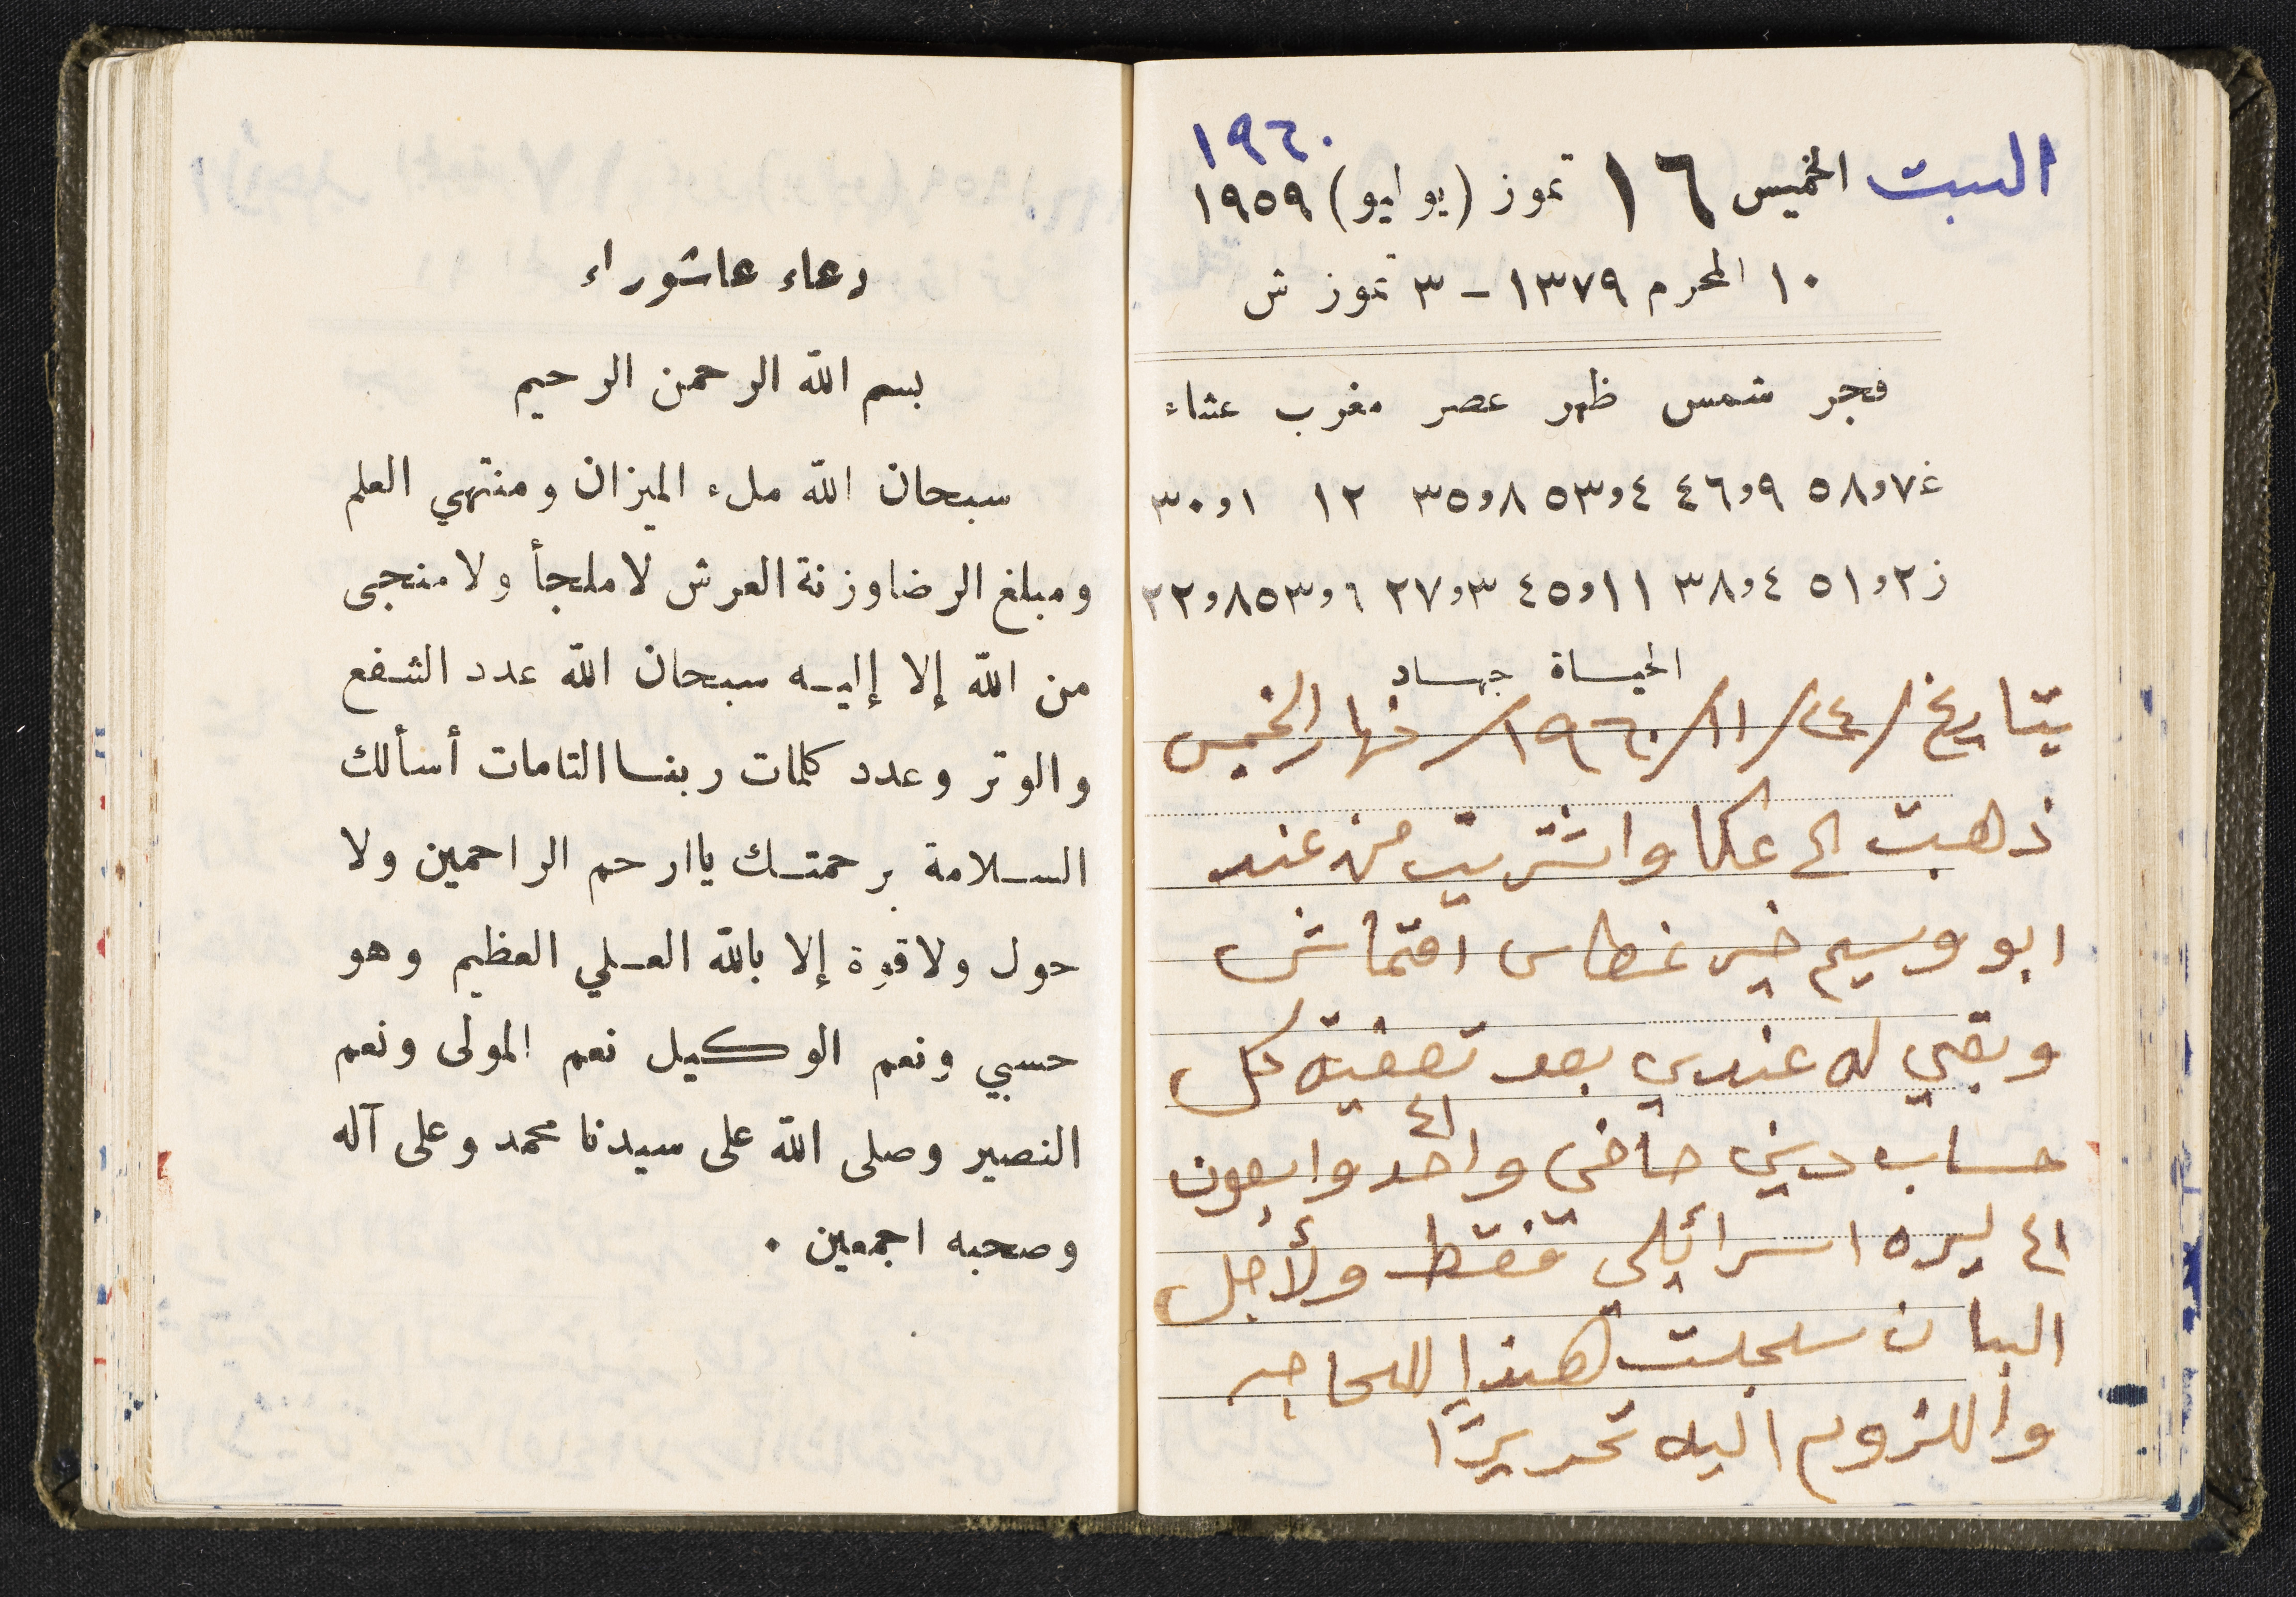 ١٩٦٠
السبت الخميس ١٦ تموز (يوليو) ١٩٥٩
١٠ المحرم ١٣٧٩ - ٣ تموز ش
فجر شمس ظهر عصر مغرب عشاء
غ ٧و٥٨ ٩و٤٦ ٤و٥٣ ٨و٣٥ ١٢ ١و٣٠
ز ٢و٥١ ٤و٣٨ ١١و٤٥ ٣و٢٧ ٦و٥٣ ٨و٢٢
الحياة جهاد
بتاريخ /٢٤/١١/١٩٦٠/ نهار الخميس
ذهبت الى عكا واشتريت من عند
ابو وسيم خير غطاس اقماش
وبقي له عندي بعد تصفية كل
٤١
حساب ديني ماضي واحد واربعون
٤١ ليره اسرائيلي فقط ولأجل
البيان سجلت هذا للحاجه
واللزوم اليه تحريرًا
دعاء عاشوراء
بسم الله الرحمن الرحيم
سبحان الله ملء الميزان ومنتهى العلم
ومبلغ الرضا وزنة العرش لا ملجأ ولا منجى
من الله إلا إليه سبحان الله عدد الشفع
والوتر وعدد كلمات ربنا التامات أسألك
السلامة برحمتك يا ارحم الراحمين ولا
حول ولا قوة إلا بالله العلي العظيم وهو
حسبي ونعم الوكيل نعم المولى ونعم
النصير وصلى الله على سيدنا محمد وعلى آله
وصحبه اجمعين .